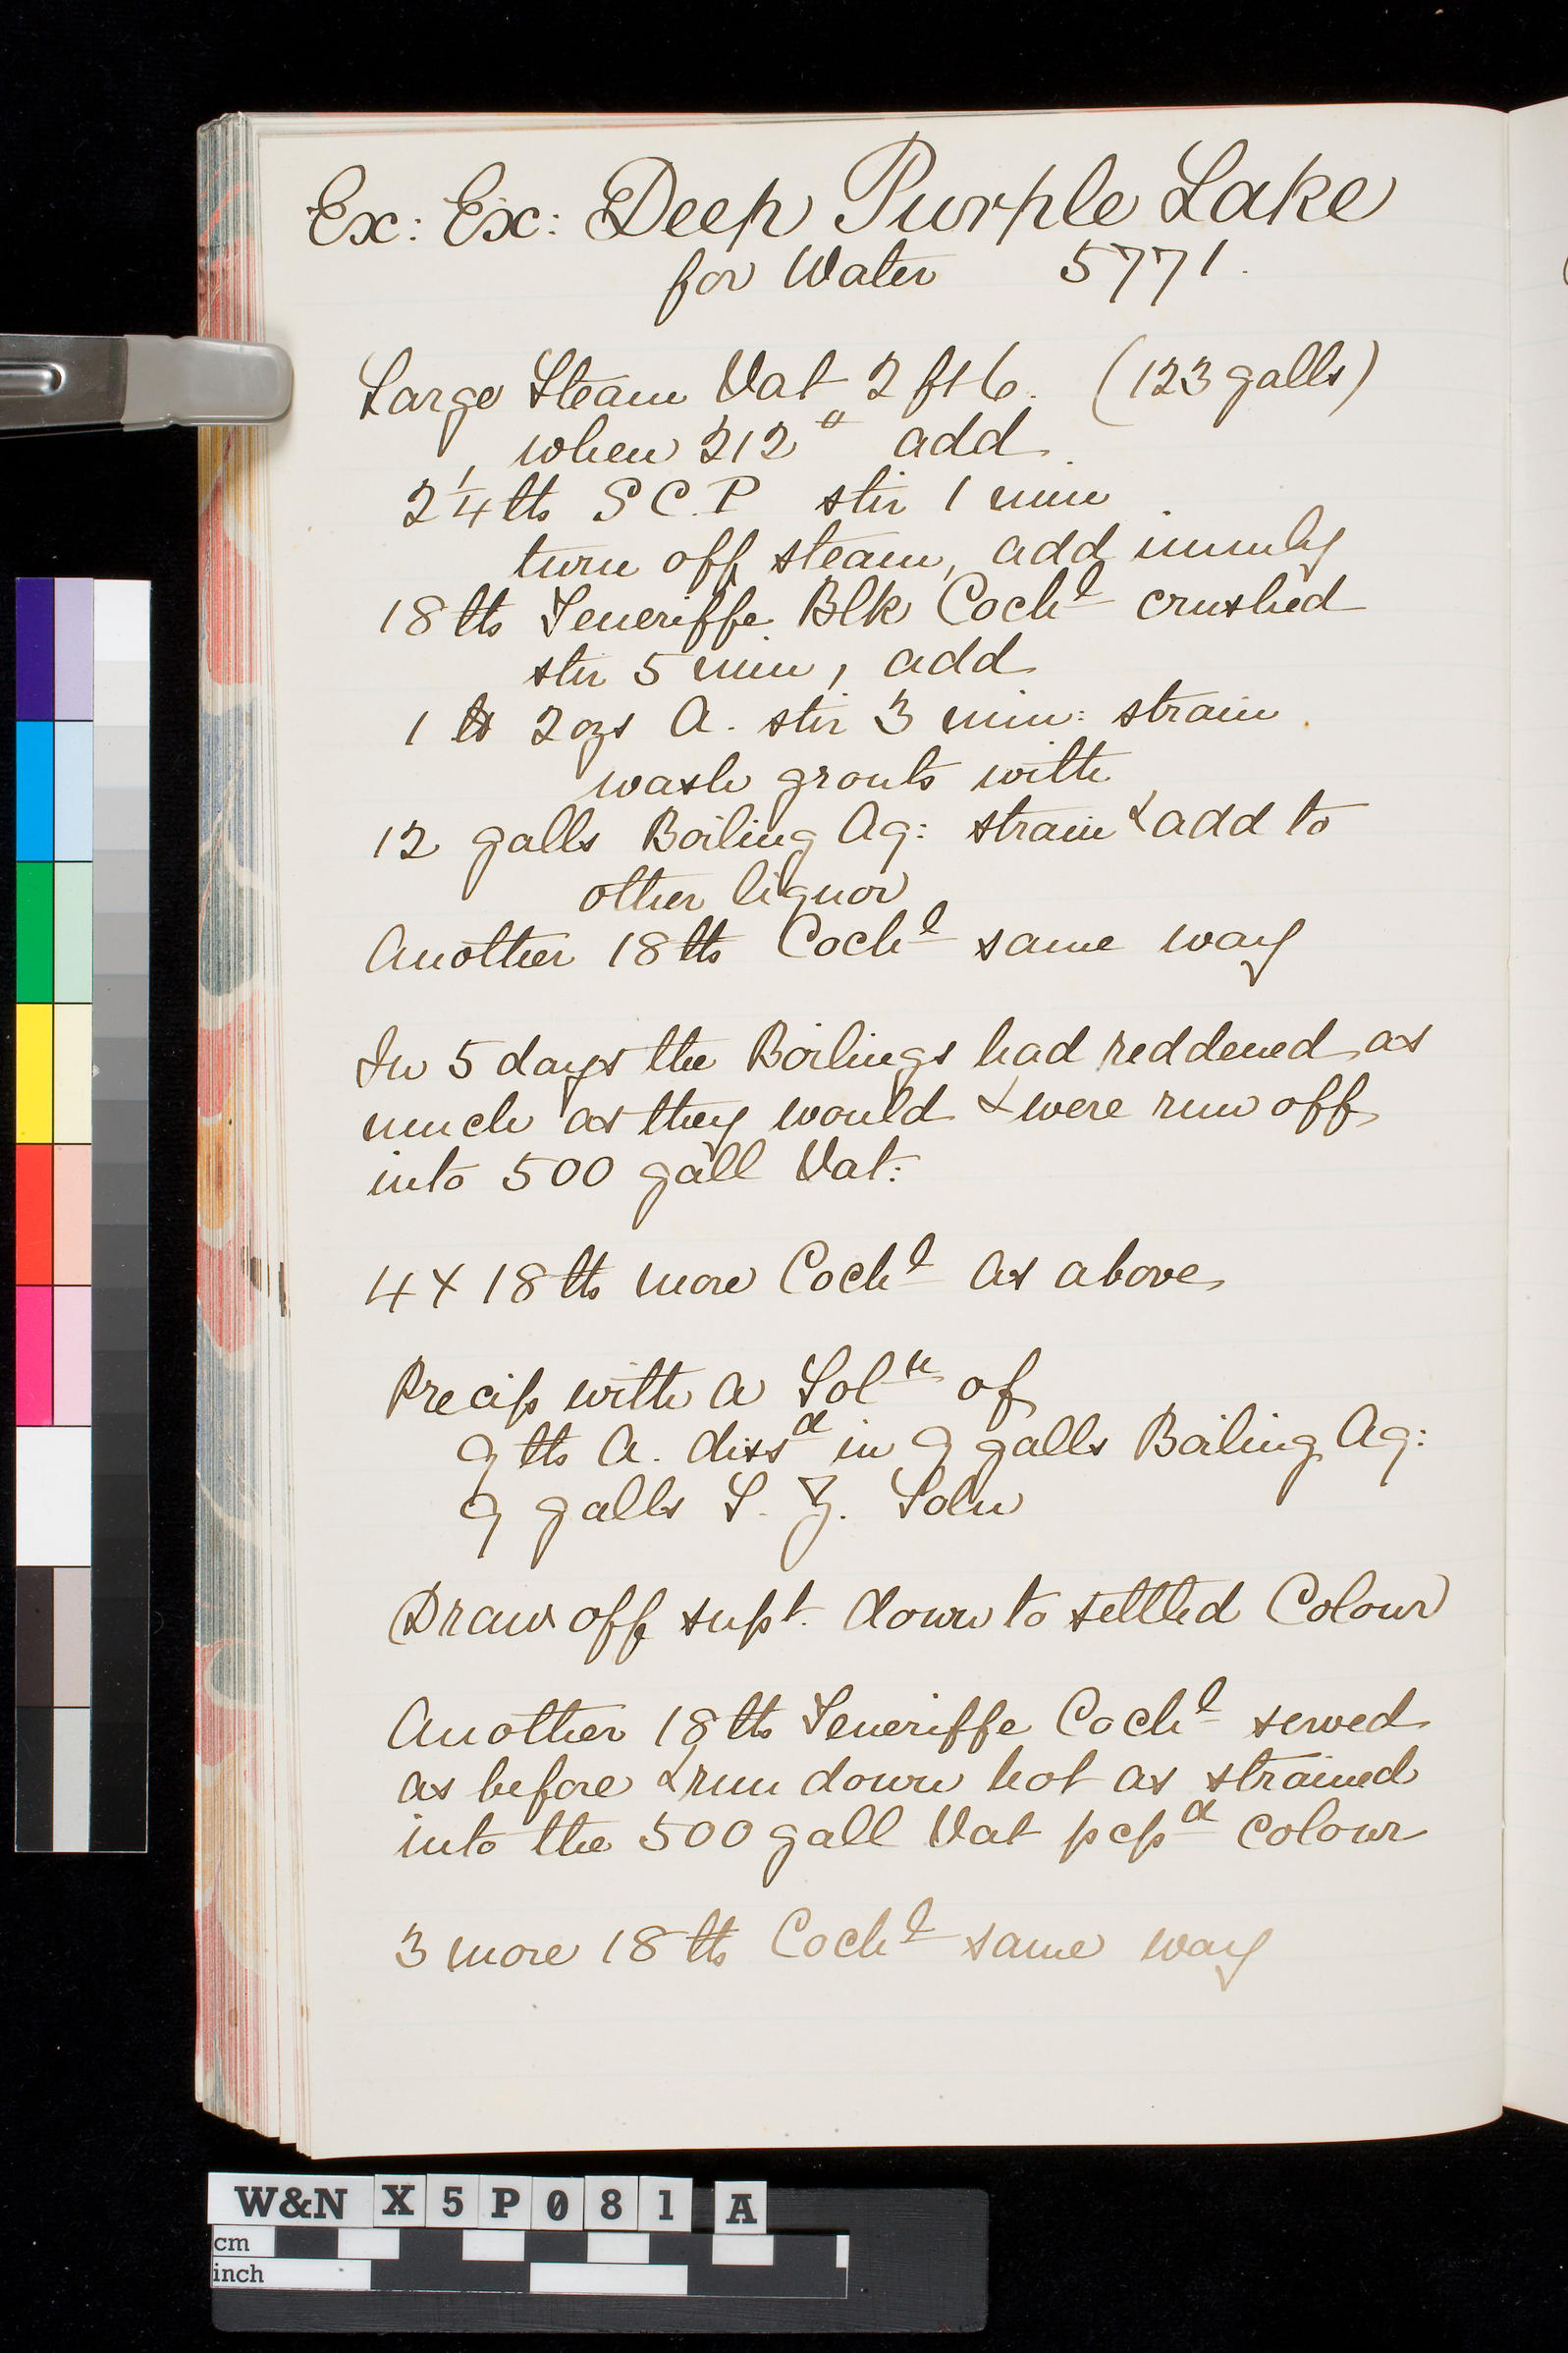 Ex: Ex: Deep Purple Lake
for Water 5771.
Large Steam Vat 2 ft 6. (123 galls)
when 212° add
2 1/4 lbs S C. P stir 1 min
turn off steam, add immly
18 lbs Teneriffe Blk Cochl crushed
stir 5 min, add
1 lb 2 ozs A. stir 3 min: strain
wash grouts with
12 galls Boiling Aq: strain & add to
other liquor
Another 18 lbs Cochl same way
In 5 days the Boilings had reddened as
much as they would & were run off
into 500 gall Vat:
4 x 18 lbs more Cochl as above
Precip with a Soln of
9 lbs A. dissd in 9 galls Boiling Aq:
9 galls S. Z. Soln
Draw off supt. down to settled Colour
Another 18 lbs Teneriffe Cochl served
as before & run down hot as strained
into the 500 gall Vat pcpd colour
3 more 18 lbs Cochl same way
W&N X 5 P 0 8 1 A
cm
inch